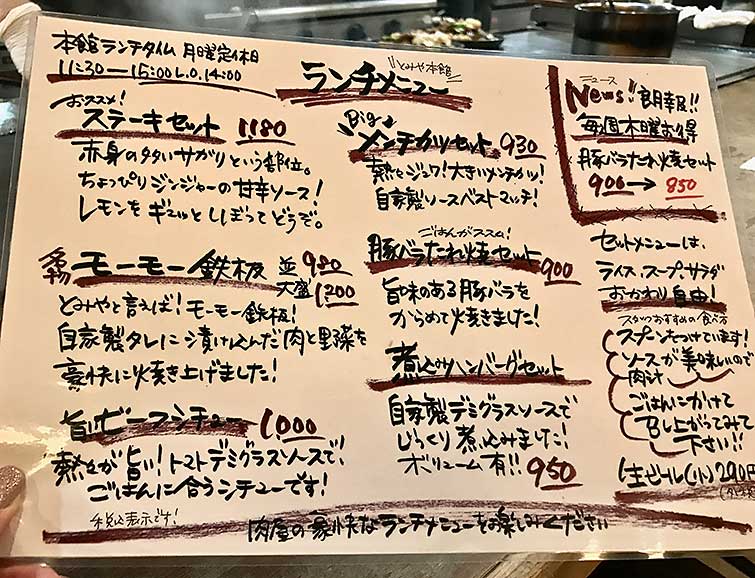 本館ランチタイム 月曜定休日
11:30―15:00 L.O.14:00
とみや本館
ランチメニュー
おススメ!
ステーキセット 1180
赤身のタタいサガリという部位。
ちょっぴりジンジャーの甘辛ソース!
レモンをギュッとしぼってどうぞ。
名物 モーモー鉄板 並 980
大盛 1200
とみやと言えば!モーモー鉄板!
自家製タレに漬け込んだ肉と野菜を
豪快に焼き上げました!
旨ビーフシチュー 1,000
熱々が旨い!トマトデミグラスソースで!
ごはんに合うシチューです!
税込表示です!
Big
メンチカツセット 930
熱々ジュワ!大きいメンチカツ!
自家製ソースベストマッチ!
ごはんがススム!
豚バラたれ焼セット 900
旨味のある豚バラを
からめて焼きました!
煮込みハンバーグセット
自家製デミグラスソースで
じっくり煮込みました!
ボリューム有!! 950
ニュース
News!! 朗報!!
毎週木曜お得
豚バラたれ焼セット
900→850
セットメニューは、
ライス、スープ、サラダ
おかわり自由!
スタッフおすすめの食べ方
スプーンをつけています!
ソースが美味しいので
肉汁
ごはんにかけて
召し上がってみて
下さい!!
生ビール(小)290円
肉屋の豪快なランチメニューをお楽しみください